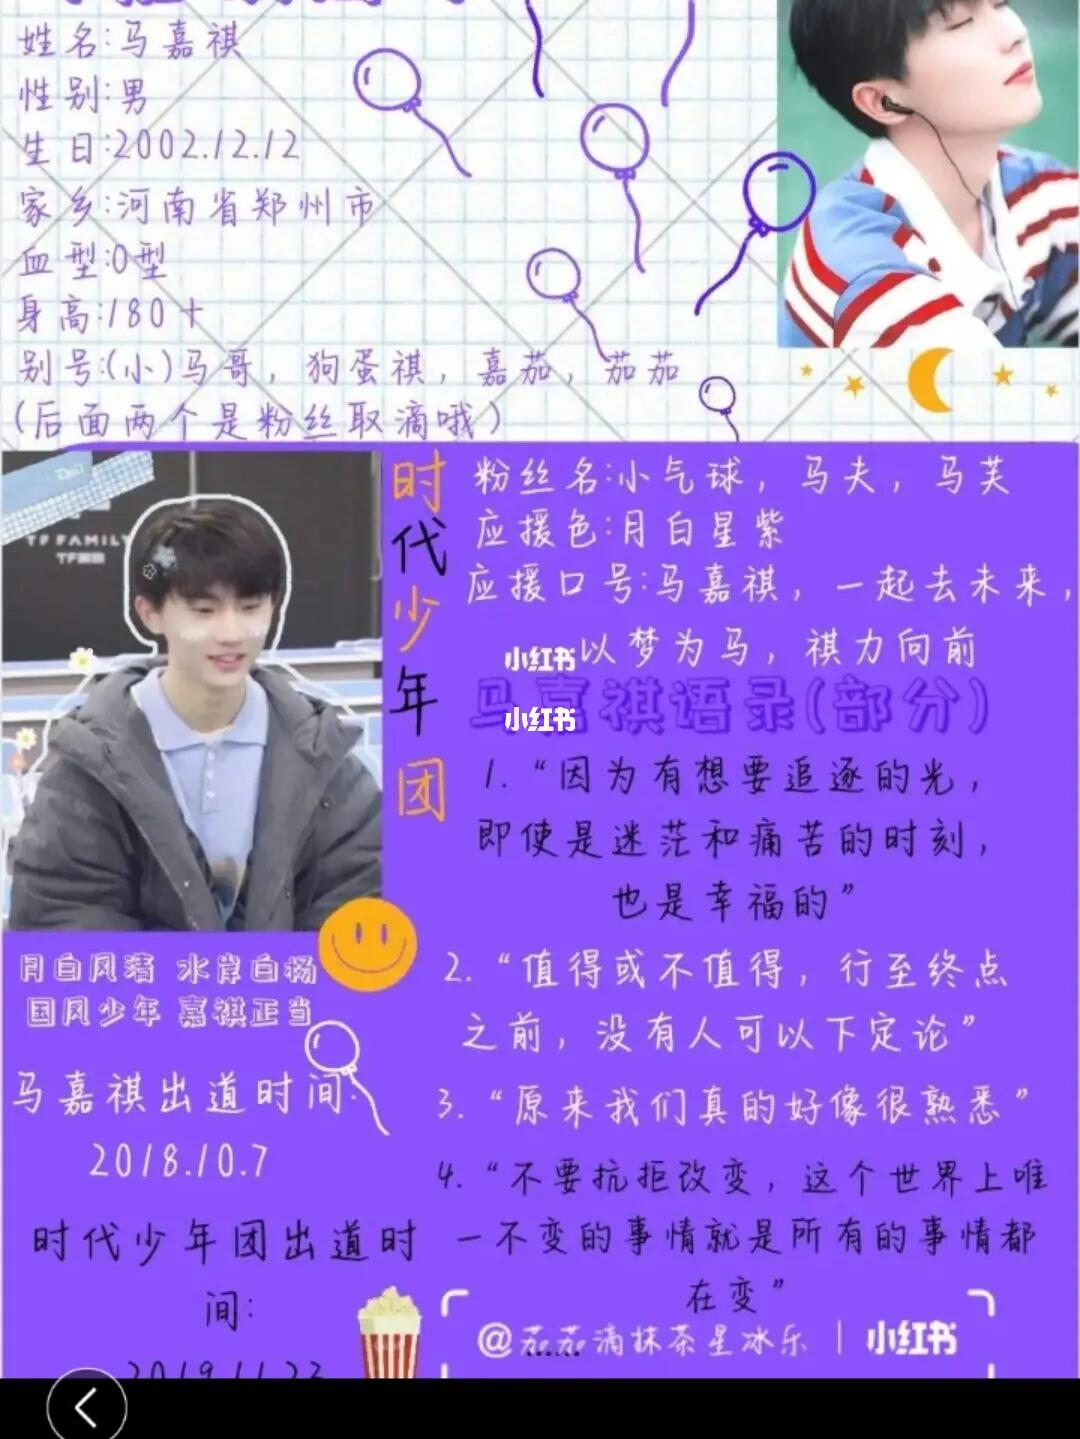 姓名:马嘉祺
性别:男
生日:2002.12.12
家乡:河南省郑州市
血型:O型
身高:180+
别号:(小)马哥，狗蛋祺，嘉茄，茄茄
(后面两个是粉丝取滴哦)
TF FAMILY
时代少年团
粉丝名:小气球，马夫，马芙
应援色:月白星紫
应援口号:马嘉祺，一起去未来，
以梦为马，祺力向前
小红书
小红书
马嘉祺语录(部分)
1.“因为有想要追逐的光，
即使是迷茫和痛苦的时刻，
也是幸福的”
2.“值得或不值得，行至终点
之前，没有人可以下定论”
3.“原来我们真的好像很熟悉”
4.“不要抗拒改变，这个世界上唯
一不变的事情就是所有的事情都
在变”
......
月白风清 水岸白杨
国风少年 嘉祺正当
马嘉祺出道时间:
2018.10.7
时代少年团出道时
间:
2019.11.23
@茄茄滴抹茶星冰乐 | 小红书